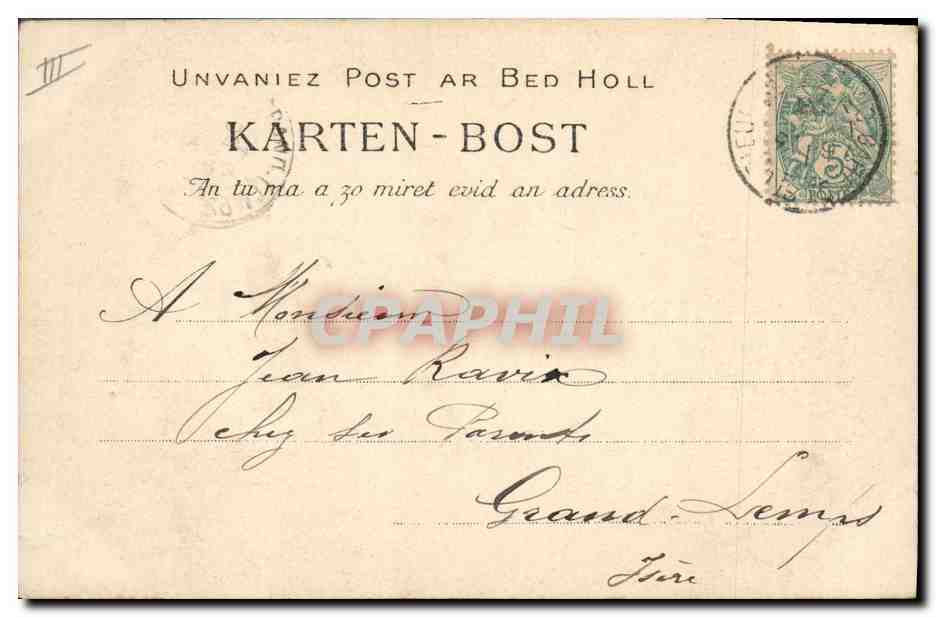 III
UNVANIEZ POST AR BED HOLL
KARTEN-BOST
An tu ma a zo miret evid an adress.
5
CPAPHIL
A Monsieur
Jean Ravix
chez ses Parents
Grand-Lemps
Isère